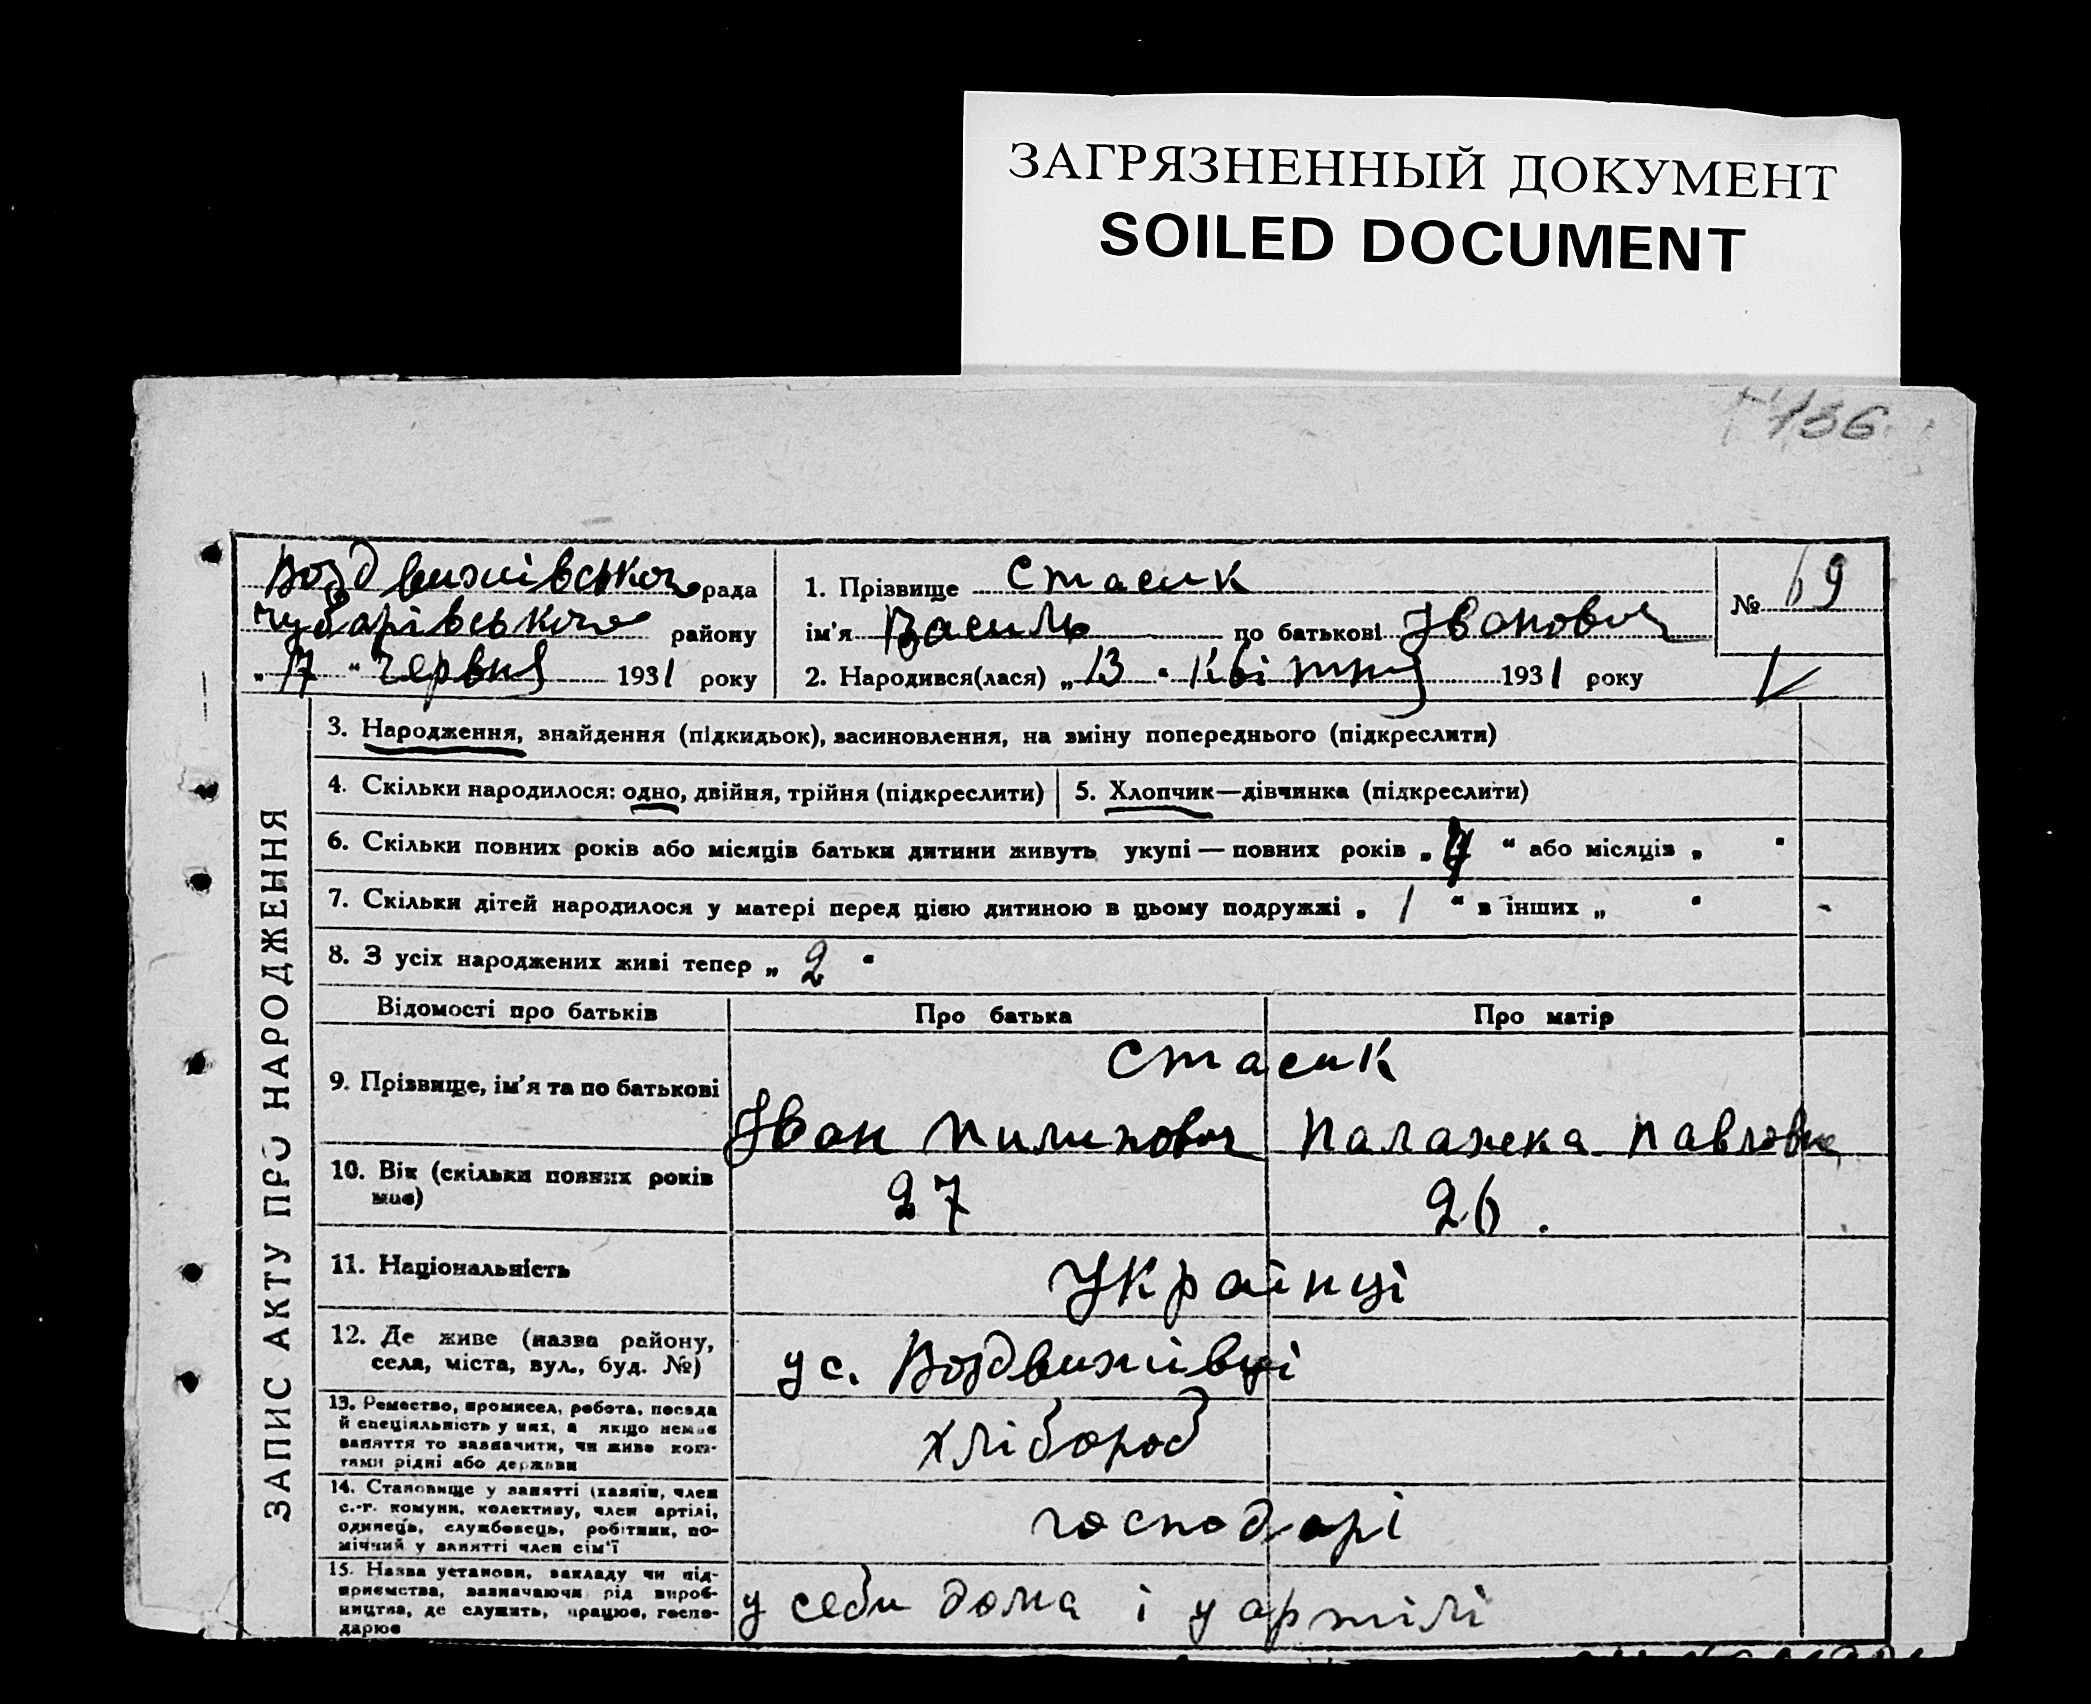 ЗАГРЯЗНЕННЫЙ ДОКУМЕНТ
SOILED DOCUMENT
136
Воздвижівської рада
Чубарівського району
„17“ червня 1931 року
1. Прізвище Стасик
ім'я Василь по батькові Іванович
2. Народився(лася) „13“ квітня 1931 року
№ 69
ЗАПИС АКТУ ПРО НАРОДЖЕННЯ
3. Народження, знайдення (підкидьок), засиновлення, на зміну попереднього (підкреслити)
4. Скільки народилося: одно, двійня, трійня (підкреслити)
5. Хлопчик—дівчинка (підкреслити)
6. Скільки повних років або місяців батьки дитини живуть укупі — повних років „ “ або місяців „ “
7. Скільки дітей народилося у матері перед цією дитиною в цьому подружжі „ 1 “ в інших „ “
8. З усіх народжених живі тепер „ 2 “
Відомості про батьків
Про батька
Про матір
9. Прізвище, ім'я та по батькові
Стасик
Іван Пилипович
Палажка Павловна
10. Вік (скільки повних років
має)
27
26.
11. Національність
Українці
12. Де живе (назва району,
села, міста, вул., буд. №)
у с. Воздвижівці
13. Ремество, промисел, робота, посада
й спеціяльність у них, а якщо немає
заняття то зазначити, чи живе кош-
тами рідні або держави
хлібороб
14. Становище у занятті (хазяїн, член
с.-г. комуни, колективу, член артілі,
одинець, службовець, робітник, по-
мічний у занятті член сім'ї
господарі
15. Назва установи, закладу чи під-
приємства, зазначаючи рід вироб-
ництва, де служить, працює, госпо-
дарює
у себи дома і у артілі